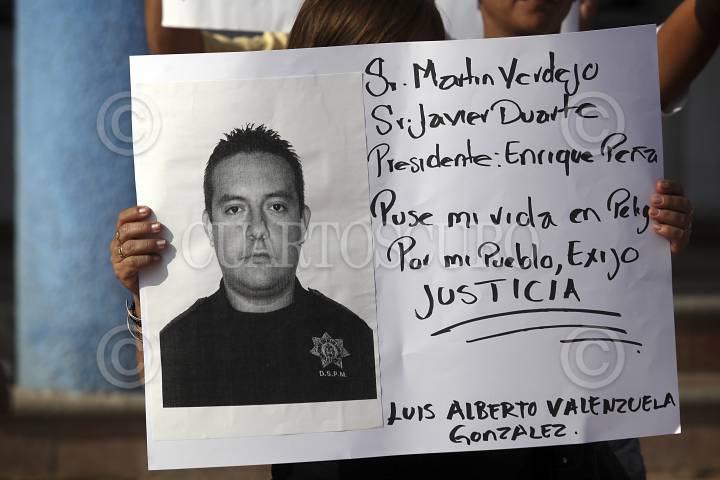 Sr. Martin Verdejo
Sr. Javier Duarte
Presidente: Enrique Peña
Puse mi vida en
Por mi Pueblo, Exijo
JUSTICIA
LUIS ALBERTO VALENZUELA
GONZALEZ.
D.S.P.M.
CUARTOSCURO
©
©
©
©